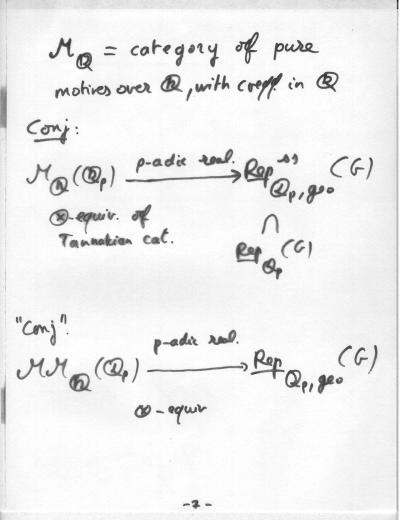 M_ℚ = category of pure
motives over ℚ, with coeff. in ℚ
Conj:
M_ℚ(ℚ_p) p-adic real. → Rep^ss_ℚ_p,geo (G)
⊗-equiv. of
Tannakian cat.
∩
Rep_ℚ_p (G)
"Conj".
p-adic real.
MM_ℚ(ℚ_p) → Rep_ℚ_p,geo (G)
⊗-equiv
-7-